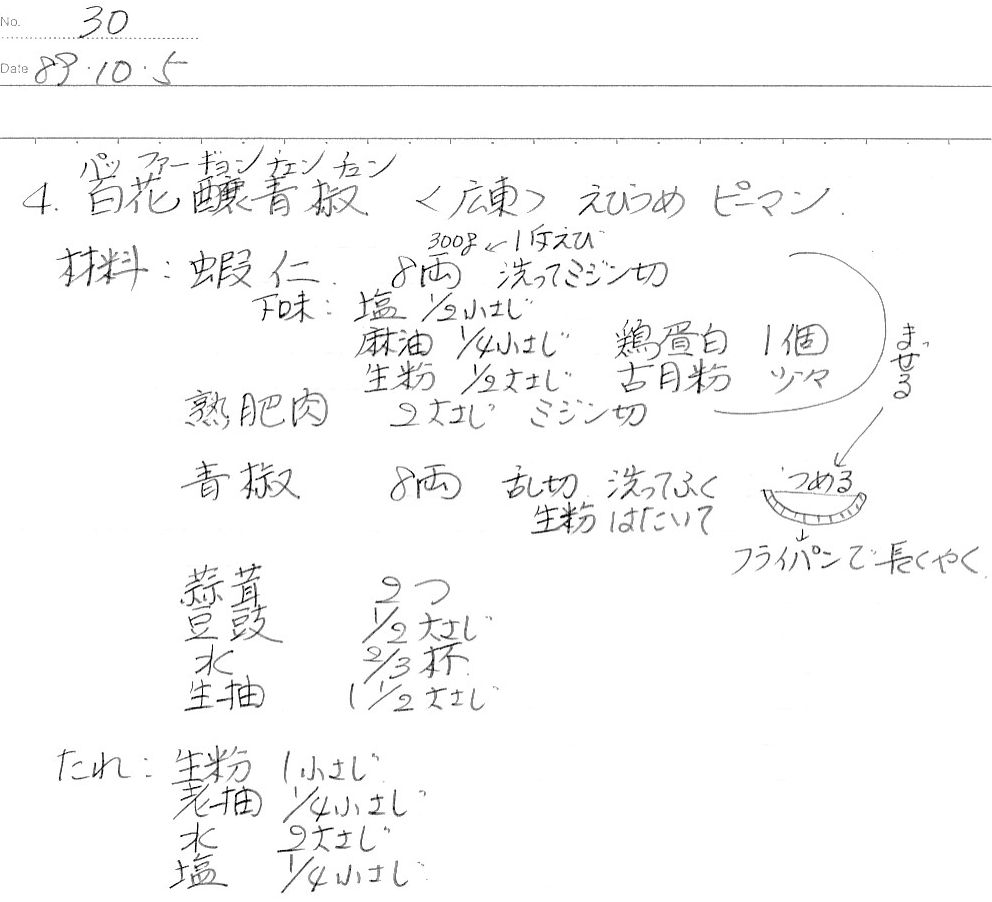 No. 30
Date 89・10・5
パッ ファー ギョン チェン チュン
4. 百花釀青椒 〈広東〉 えびづめ ピーマン
300g ← 1斤えび
材料: 蝦仁 8両 洗ってミジン切
下味: 塩 1/2小さじ
麻油 1/4小さじ 鶏蛋白 1個
生粉 1/2大さじ 古月粉 少々
熟肥肉 2大さじ ミジン切
まぜる
青椒 8両 乱切 洗ってふく
生粉 はたいて
つめる
フライパンで長くやく
蒜茸 2つ
豆豉 1/2大さじ
水 2/3杯
生抽 1 1/2大さじ
たれ: 生粉 1小さじ
老抽 1/4小さじ
水 2大さじ
塩 1/4小さじ